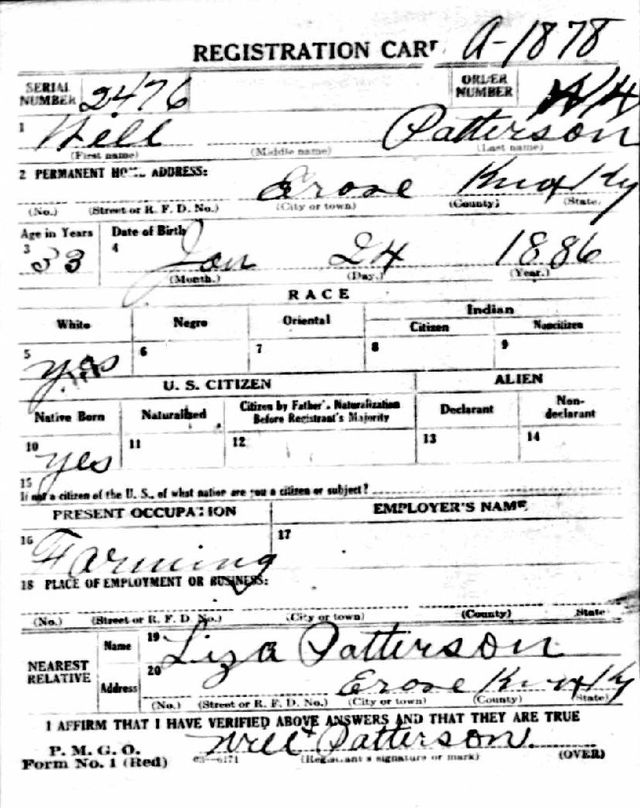 REGISTRATION CARD A-1878
SERIAL NUMBER 2476 ORDER NUMBER
1 Will Patterson
(First name) (Middle name) (Last name)
2 PERMANENT HOME ADDRESS:
Erose Knox Ky
(No.) (Street or R. F. D. No.) (City or town) (County) (State)
Age in Years Date of Birth
3 33 4 Jan 24 1886
(Month.) (Day.) (Year.)
RACE
White Negro Oriental Indian
Citizen Noncitizen
5 yes 6 7 8 9
U. S. CITIZEN ALIEN
Native Born Naturalized Citizen by Father's Naturalization Before Registrant's Majority Declarant Non-declarant
10 yes 11 12 13 14
15 If not a citizen of the U. S., of what nation are you a citizen or subject?
PRESENT OCCUPATION EMPLOYER'S NAME
16 Farming 17
18 PLACE OF EMPLOYMENT OR BUSINESS:
(No.) (Street or R. F. D. No.) (City or town) (County) (State)
NEAREST RELATIVE Name 19 Liza Patterson
Address 20 Erose Knox Ky
(No.) (Street or R. F. D. No.) (City or town) (County) (State)
I AFFIRM THAT I HAVE VERIFIED ABOVE ANSWERS AND THAT THEY ARE TRUE
P. M. G. O.
Form No. 1 (Red) Will Patterson.
(Registrant's signature or mark) (OVER)